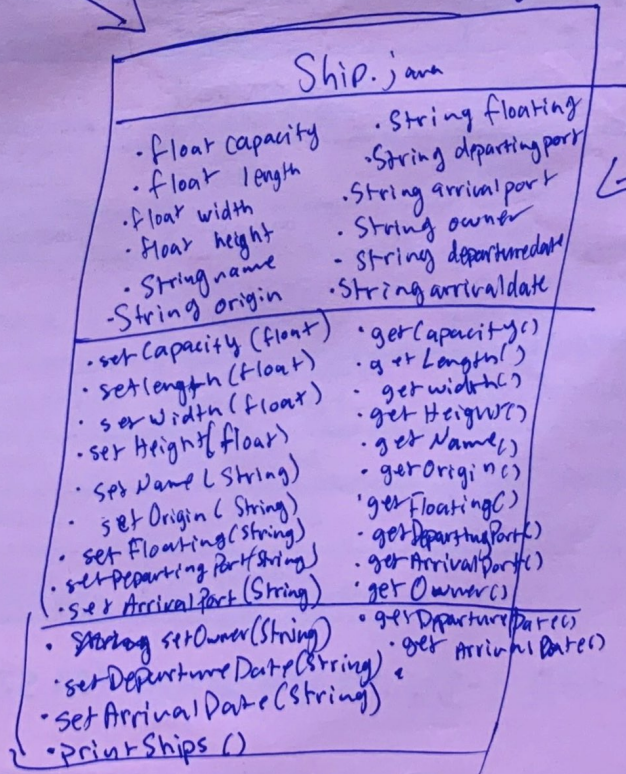 Ship.java
· float capacity
· float length
· float width
· float height
· String name
- String origin
· String floating
· String departingport
· String arrivalport
· String owner
- String departuredate
· String arrivaldate
· setCapacity (float)
· setlength (float)
· setWidth (float)
· setHeight (float)
· setName (String)
· setOrigin (String)
· setFloating (String)
· setDeparting Port (String)
· set ArrivalPort (String)
· setOwner (String)
· setDepartureDate (String)
· setArrivalDate (String)
· printShips ()
· getCapacity()
· getLength()
· getwidth()
· getHeight()
· getName()
· getOrigin()
· getFloating()
· getDepartingPort()
· getArrivalPort()
· getOwner()
· getDepartureDate()
· get ArrivalDate()